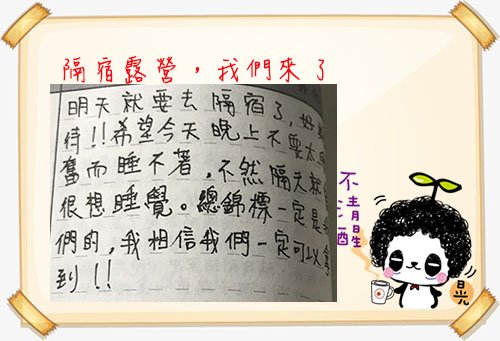 隔宿露營，我們來了
明天就要去隔宿了,好
待!!希望今天晚上不要太
奮而睡不著,不然隔天就
很想睡覺。總錦標一定是
們的,我相信我們一定可以拿
到!!
不清醒